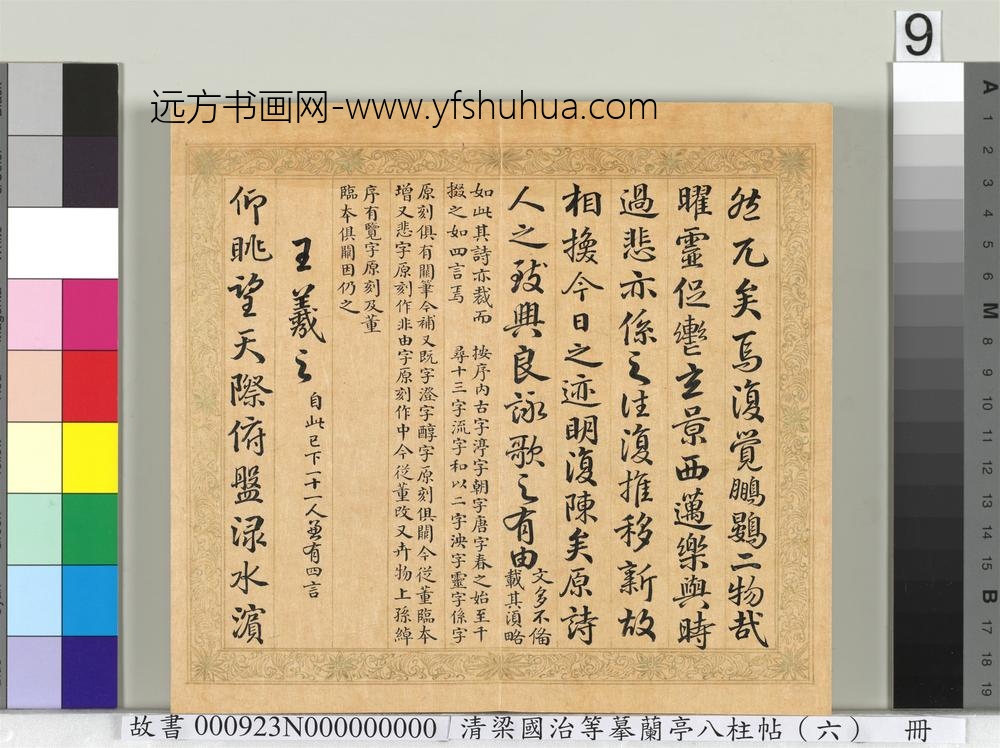 9
远方书画网-www.yfshuhua.com
然兀矣焉復覺鵬鷃二物哉
曜靈促轡玄景西邁樂與時
過悲亦係之往復推移新故
相換今日之迹明復陳矣原詩
人之致興良詠歌之有由
文多不備
載其湏略
如此其詩亦裁而
掇之如四言焉
按序内古字渟字朝字唐字春之始至千
尋十三字流字和以二字泱字靈字係字
原刻俱有闕筆今補又既字澄字醇字原刻俱闕今従董臨本
增又悲字原刻作非由字原刻作中今従董改又卉物上孫綽
序有覽字原刻及董
臨本俱闕因仍之
王羲之
自此已下一十一人並有四言
仰眺望天際俯盤渌水濱
A 1 2 3 4 5 6 M 8 9 10 11 12 13 14 15 B 17 18 19
故書 000923N000000000 清梁國治等摹蘭亭八柱帖（六） 冊